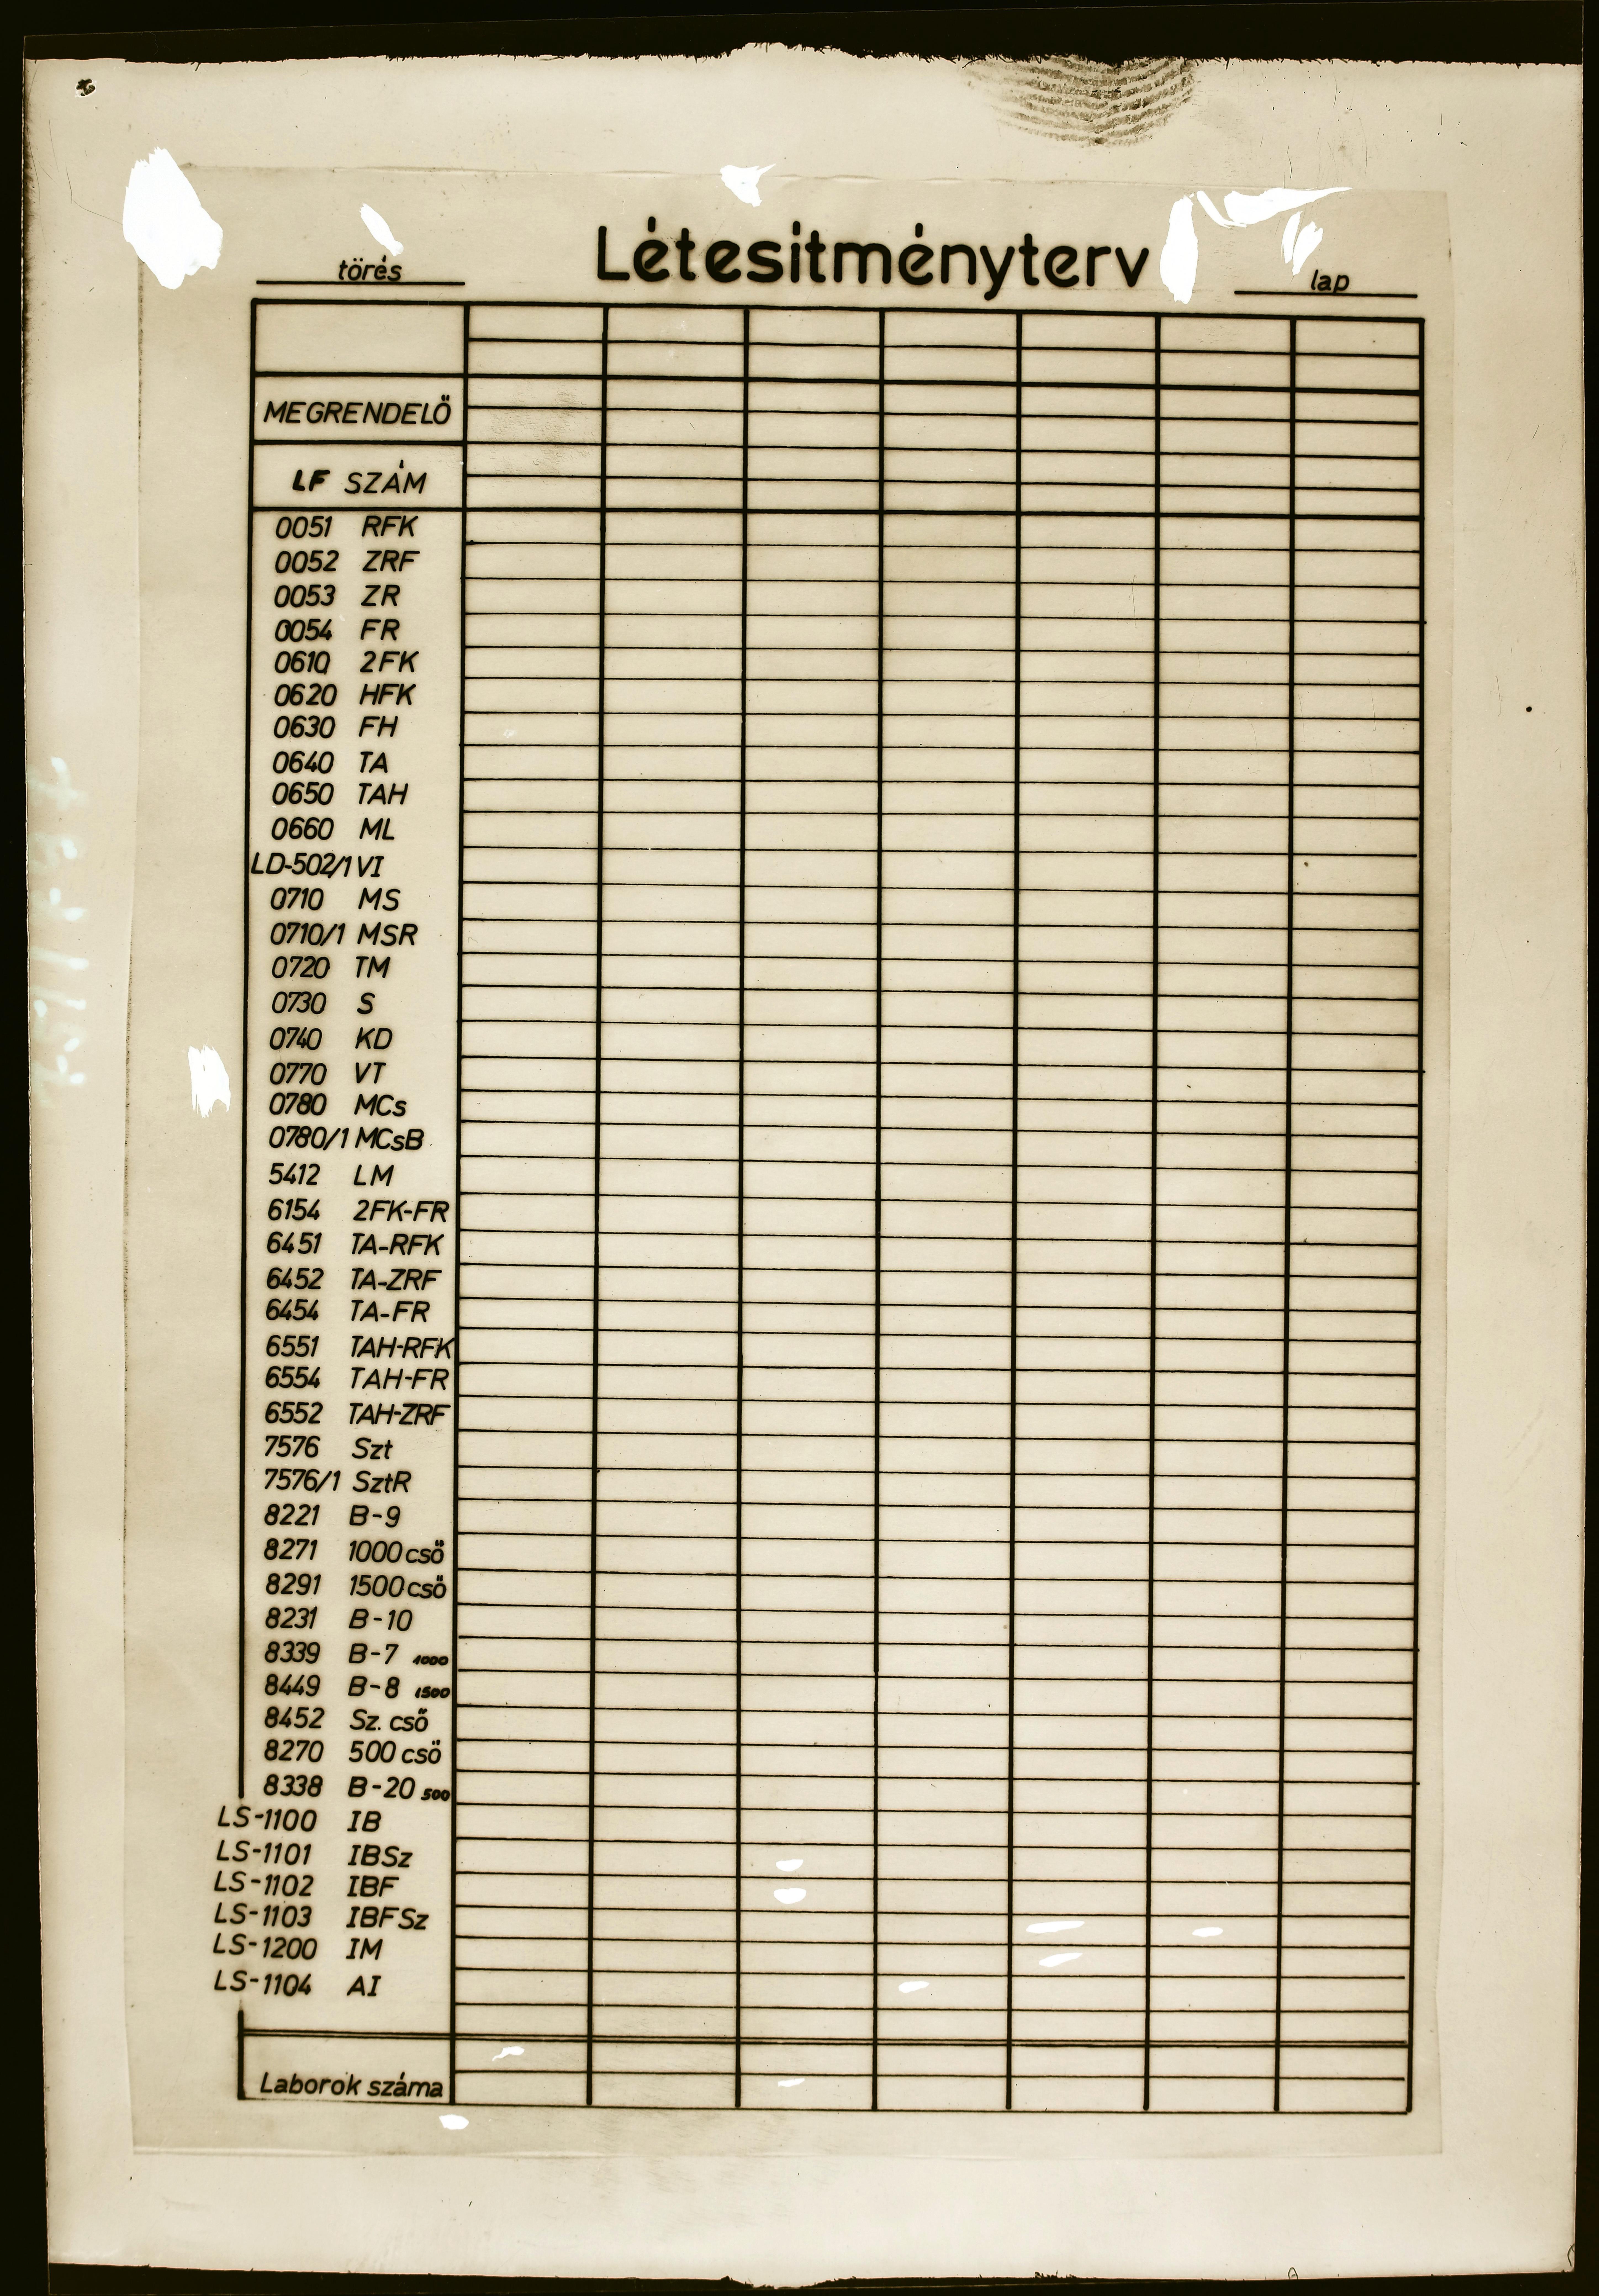 törés
Létesitményterv
lap
MEGRENDELŐ
LF SZÁM
0051 RFK
0052 ZRF
0053 ZR
0054 FR
0610 2FK
0620 HFK
0630 FH
0640 TA
0650 TAH
0660 ML
LD-502/1 VI
0710 MS
0710/1 MSR
0720 TM
0730 S
0740 KD
0770 VT
0780 MCs
0780/1 MCsB
5412 LM
6154 2FK-FR
6451 TA-RFK
6452 TA-ZRF
6454 TA-FR
6551 TAH-RFK
6554 TAH-FR
6552 TAH-ZRF
7576 Szt
7576/1 SztR
8221 B-9
8271 1000 cső
8291 1500 cső
8231 B-10
8339 B-7 1000
8449 B-8 1500
8452 Sz. cső
8270 500 cső
8338 B-20 500
LS-1100 IB
LS-1101 IBSz
LS-1102 IBF
LS-1103 IBFSz
LS-1200 IM
LS-1104 AI
Laborok száma